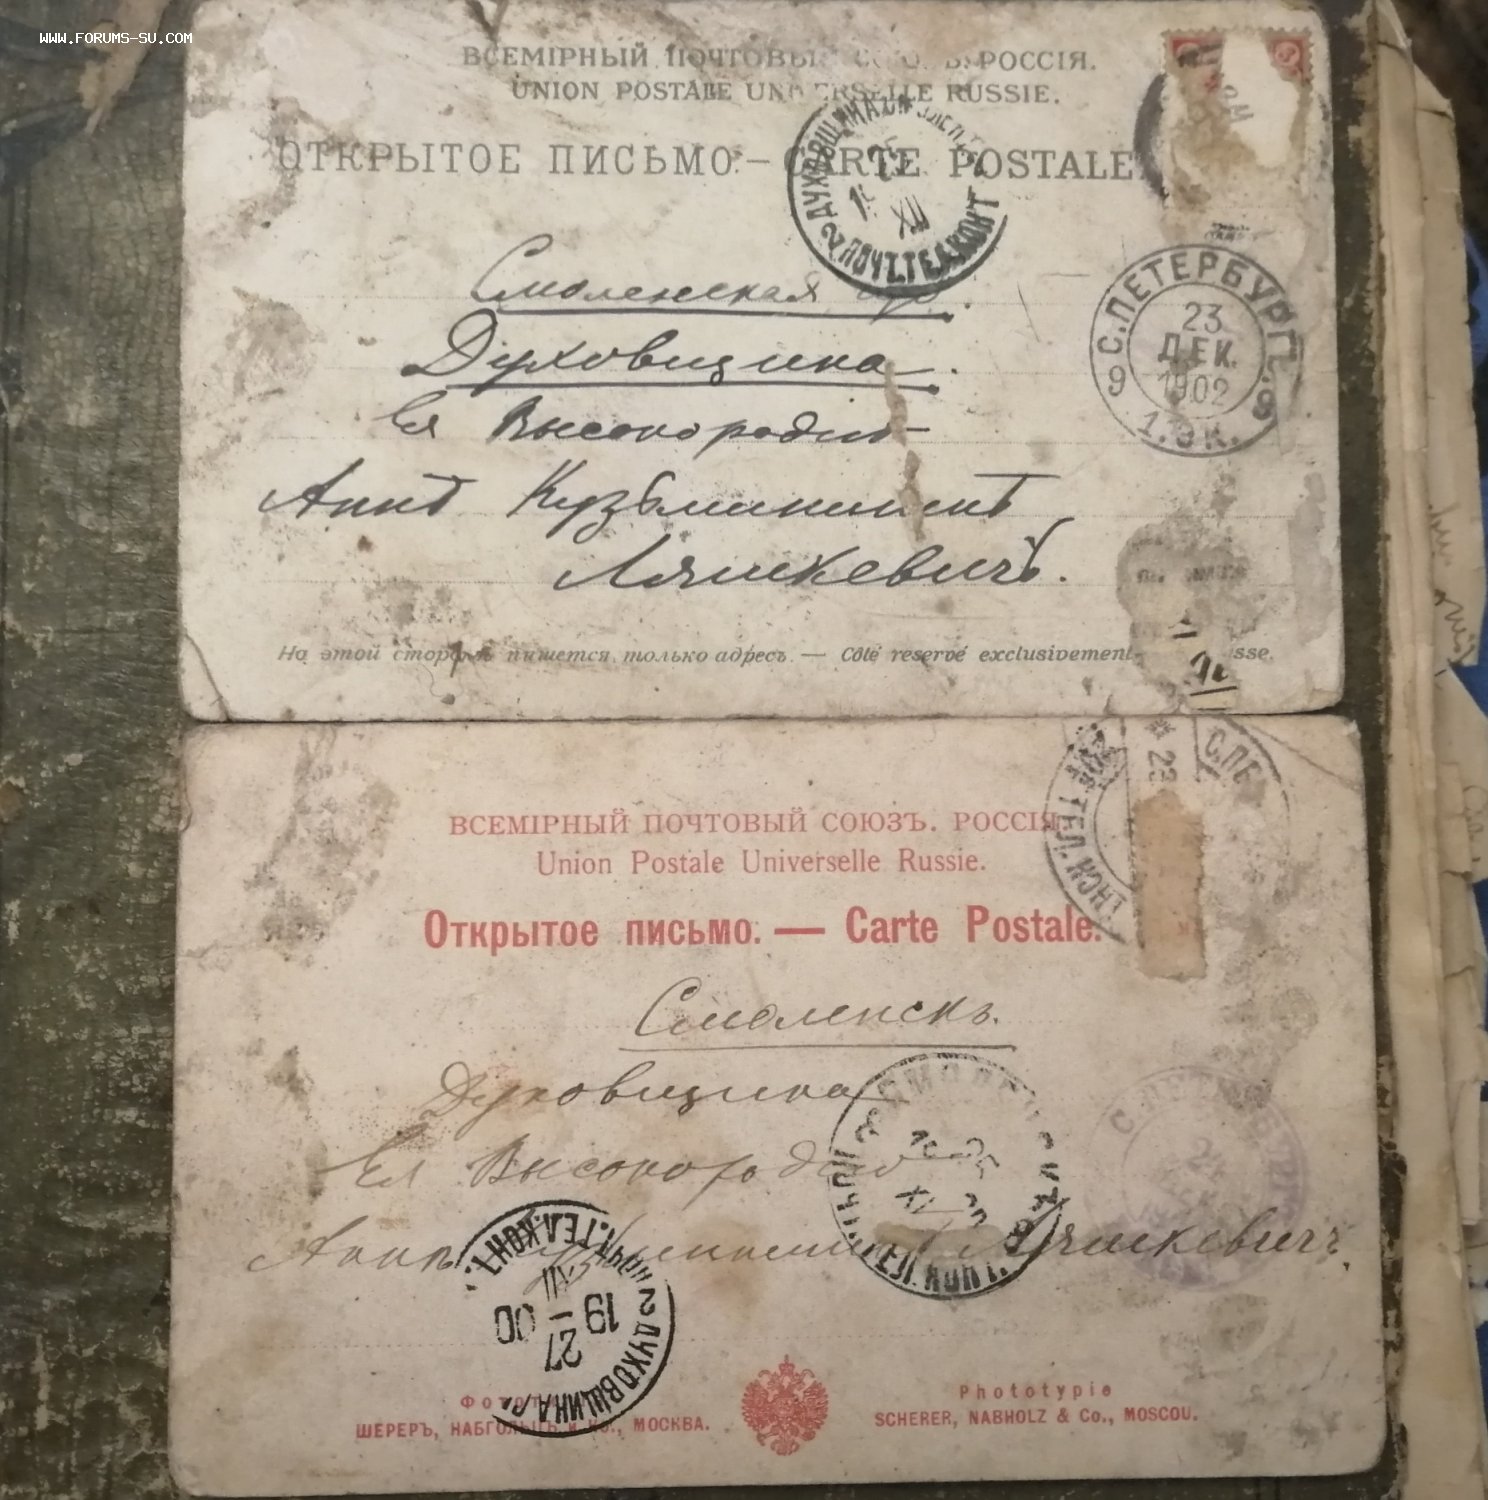 WWW.FORUMS-SU.COM
ВСЕМІРНЫЙ ПОЧТОВЫ РОССІЯ.
UNION POSTALE UNIVERSELLE RUSSIE.
ОТКРЫТОЕ ПИСЬМО.— CARTE POSTALE
2 ДУХОВЩИНА
XII
ПОЧТ.ТЕЛ.КОНТ
Смоленская гу.
Духовщина.
С.ПЕТЕРБУРГЪ
23
ДЕК.
1902
9 9
1.ЭК.
Ея Высокородію
Аннѣ Кузьминишнѣ
Ляшкевичъ.
На этой сторонѣ пишется только адресъ. — Côté reservé exclusivement sse.
ВСЕМІРНЫЙ ПОЧТОВЫЙ СОЮЗЪ. РОССІЯ.
Union Postale Universelle Russie.
Открытое письмо. — Carte Postale.
23
С.ПБ
Смоленскъ.
Духовщина
Ея Высокородію
Аннѣ Кузьминишнѣ Ляшкевичъ
2 ДУХОВЩИНА
27
19 — 00
ПОЧТ.ТЕЛ.КОНТ.
Фототипія
ШЕРЕРЪ, НАБГОЛЬЦЪ и Ко., МОСКВА.
Phototypie
SCHERER, NABHOLZ & Co., MOSCOU.